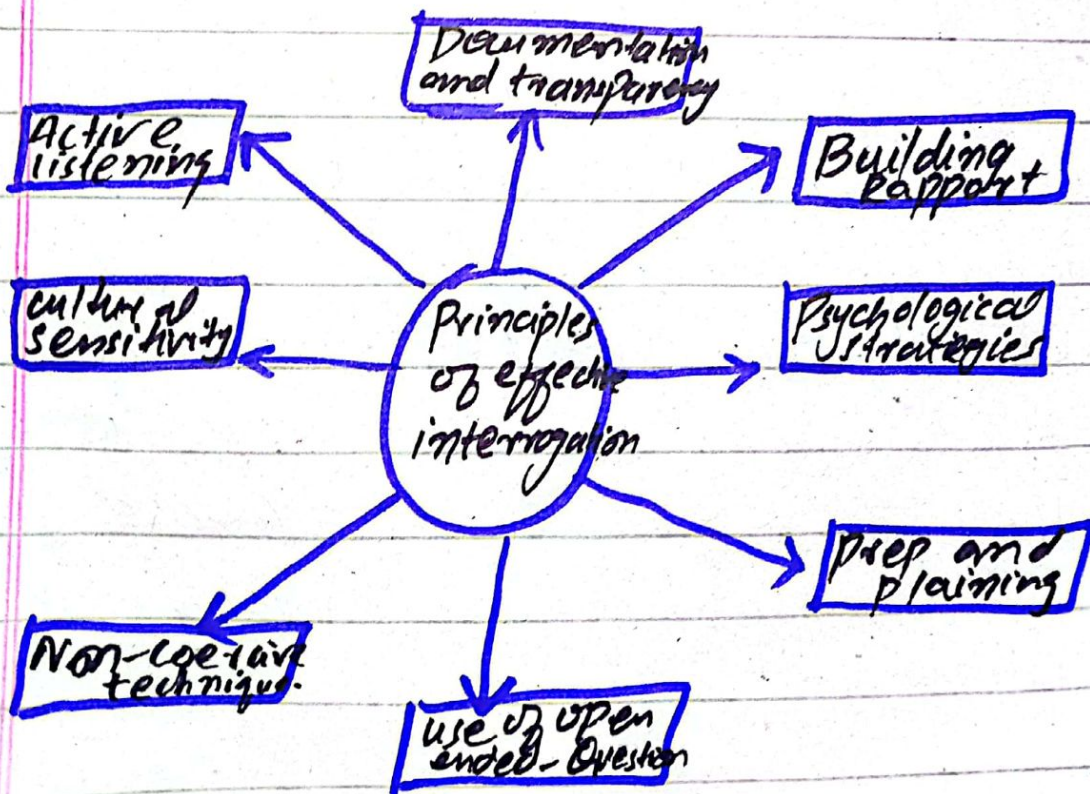 Documentation
and transparency
Active
listening
Building
Rapport
cultural
sensitivity
Principles
of effective
interrogation
Psychological
strategies
prep and
plaining
Non-coercive
technique.
use of open
ended-Question